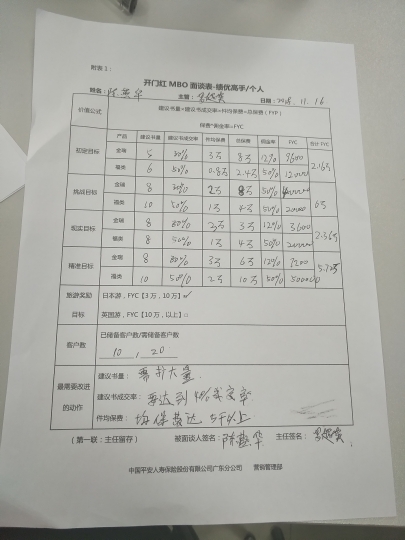 附表1：
开门红 MBO 面谈表-绩优高手/个人
姓名： 主管： 日期：2018.11.16
价值公式 建议书量*建议书成交率=件均单费=总保费（FYP）
保费*佣金率=FYC
产品 建议书量 建议书成交率 件均保费 总保费 佣金率 FYC 合计 FYC
稳定目标 金瑞 5 30% 3万 8万 12% 9600 2.16万
福类 6 50% 0.8万 2.4万 50% 12000
挑战目标 金瑞 8 30% 2万 8万 50% 40000 6万
福类 10 50% 1万 4万 50% 20000
现实目标 金瑞 8 30% 3万 12% 3600 2.36万
福类 8 50% 1万 4万 50% 20000
精准目标 金瑞 8 30% 3万 6万 12% 7200
福类 10 50% 2万 10万 50% 50000
旅游奖励目标 日本游，FYC【3万，10万】
英国游，FYC【10万，以上】□
客户数 已储备客户数/需储备客户数
10 , 20
最需要改进的动作 建议书量： 需扩大量
建议书成交率： 要达到 成交率
件均保费： 均保费达 5千以上
（第一联：主任留存） 被面谈人签名： 主任签名：
中国平安人寿保险股份有限公司广东分公司 营销管理部